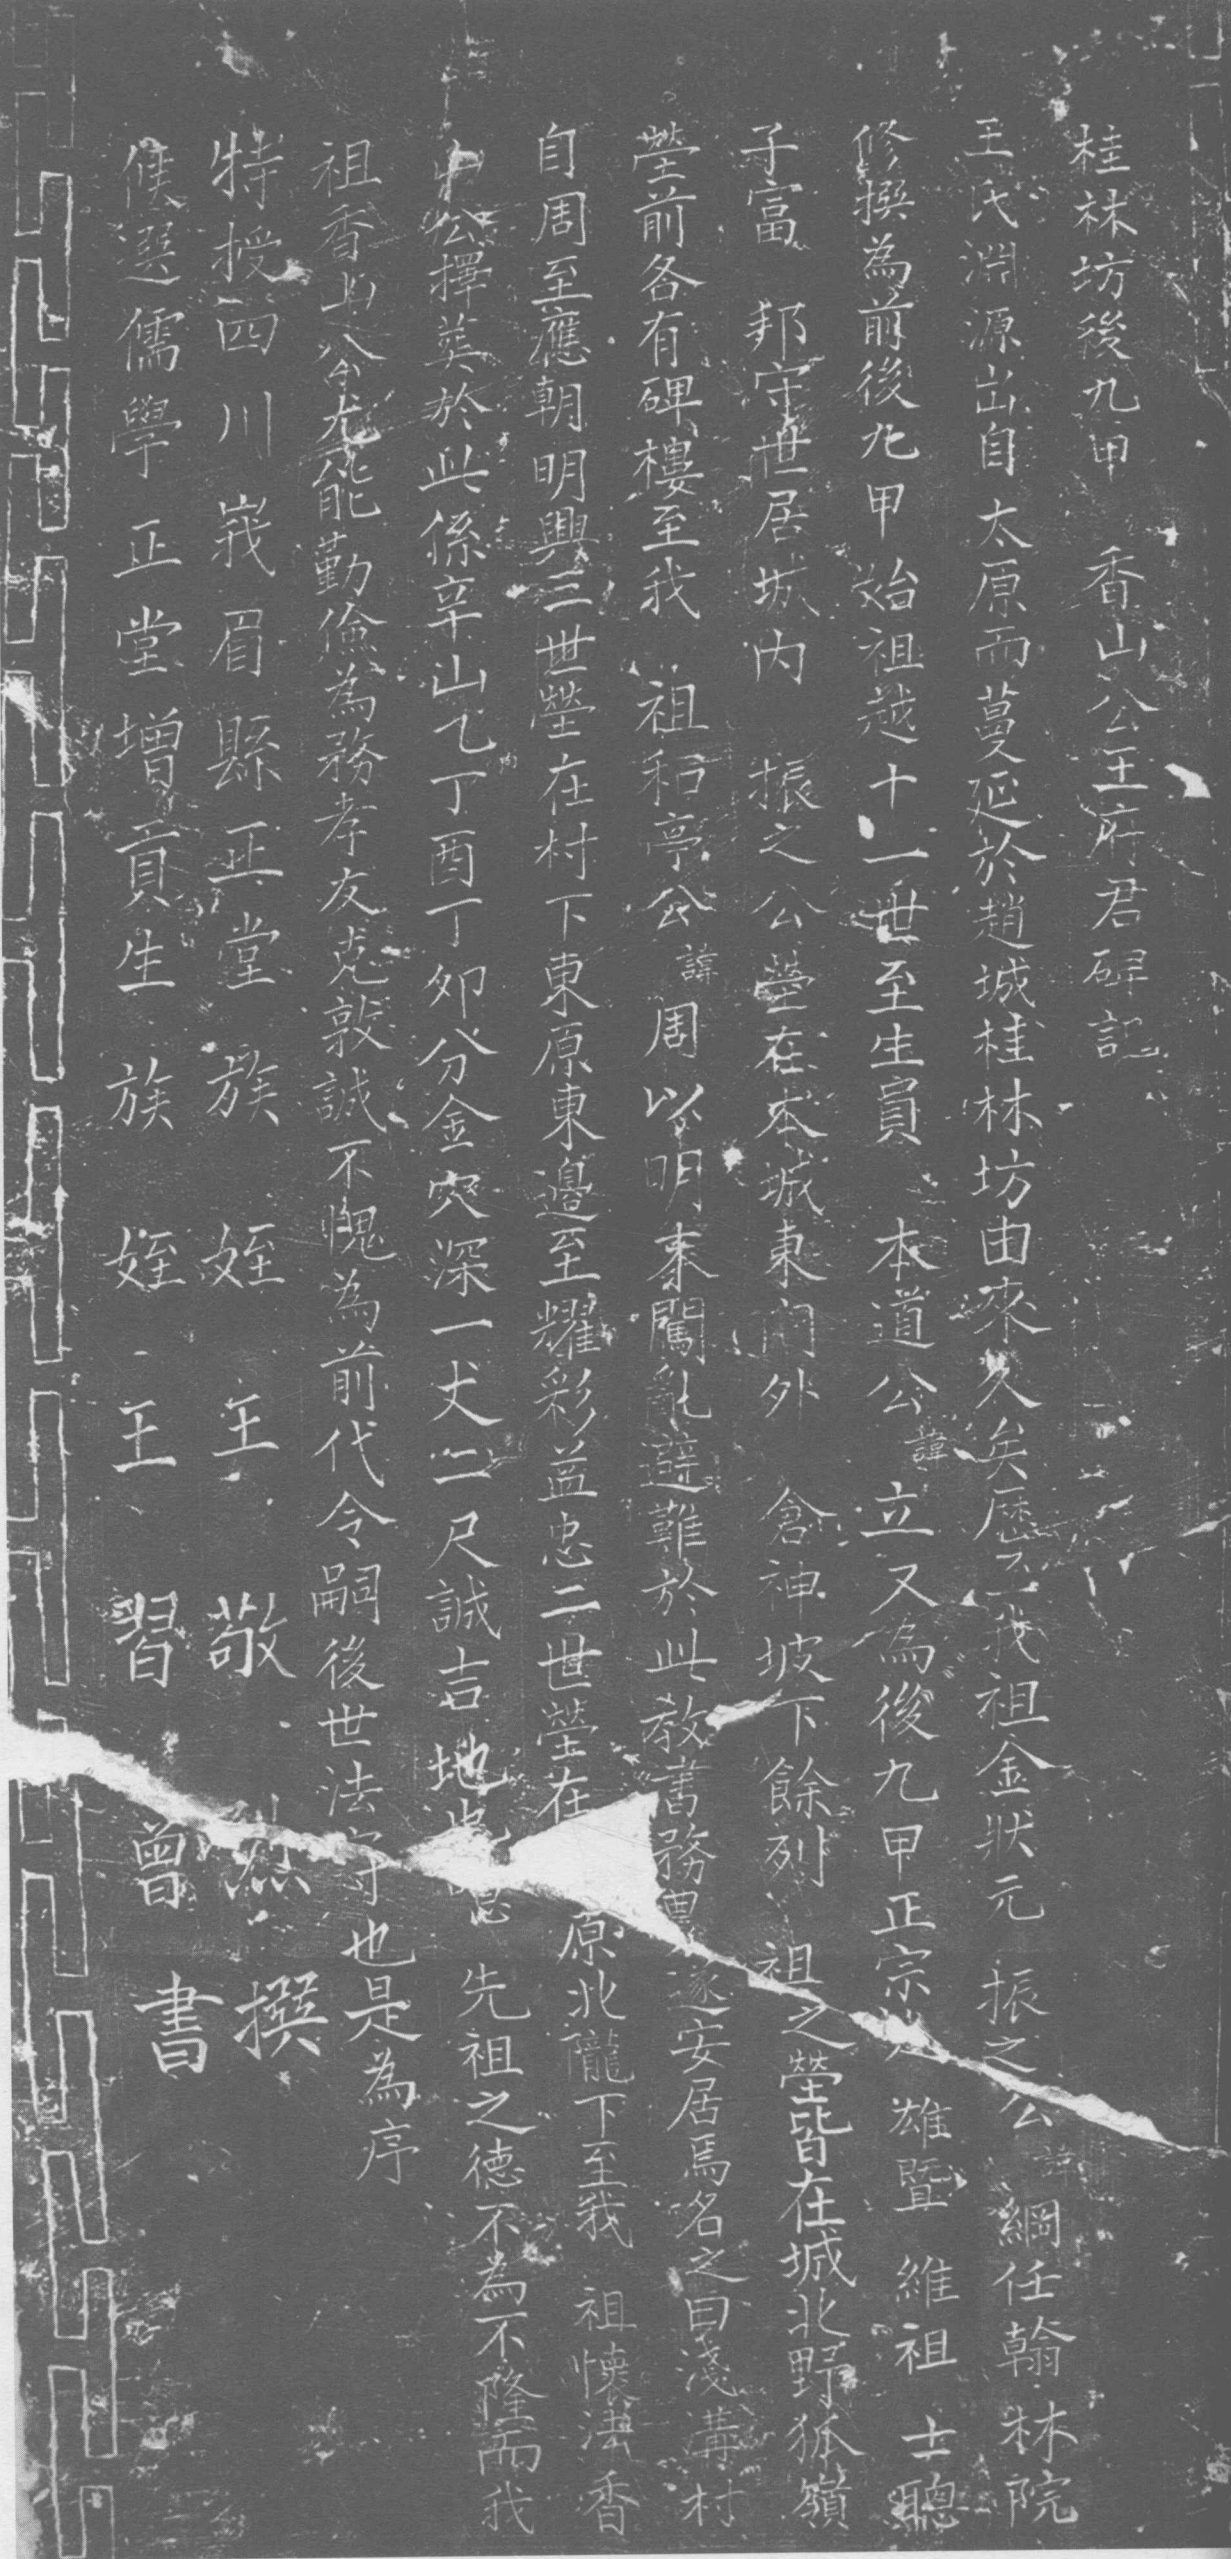 桂林坊後九甲 香山公王府君碑記
王氏淵源出自太原而蔓延於趙城桂林坊由來久矣歷至我祖金狀元 振之公諱綱任翰林院
修撰為前後九甲始祖越十一世至生員 本道公諱立又為後九甲正宗 雄暨 維祖 士聰
子富 邦守世居城內 振之公塋在本城東門外 倉神坡下餘列 祖之塋皆在城北野狐嶺
塋前各有碑樓至我 祖和亭公諱周以明末闖亂避難於此教書務農遂安居焉名之曰淺溝村
自周至應朝明興三世塋在村下東原東邊至耀彩益忠二世塋在 原北隴下至我 祖懷法香
山公擇塋於此係辛山乙丁酉丁卯分金穴深一丈二尺誠吉地也噫 先祖之德不為不隆而我
祖香山公尤能勤儉為務孝友克敦誠不愧為前代令嗣後世法守也是為序
特授四川峩眉縣正堂 族 姪 王 敬 撰
候選儒學正堂增貢生 族 姪 王 習曾 書